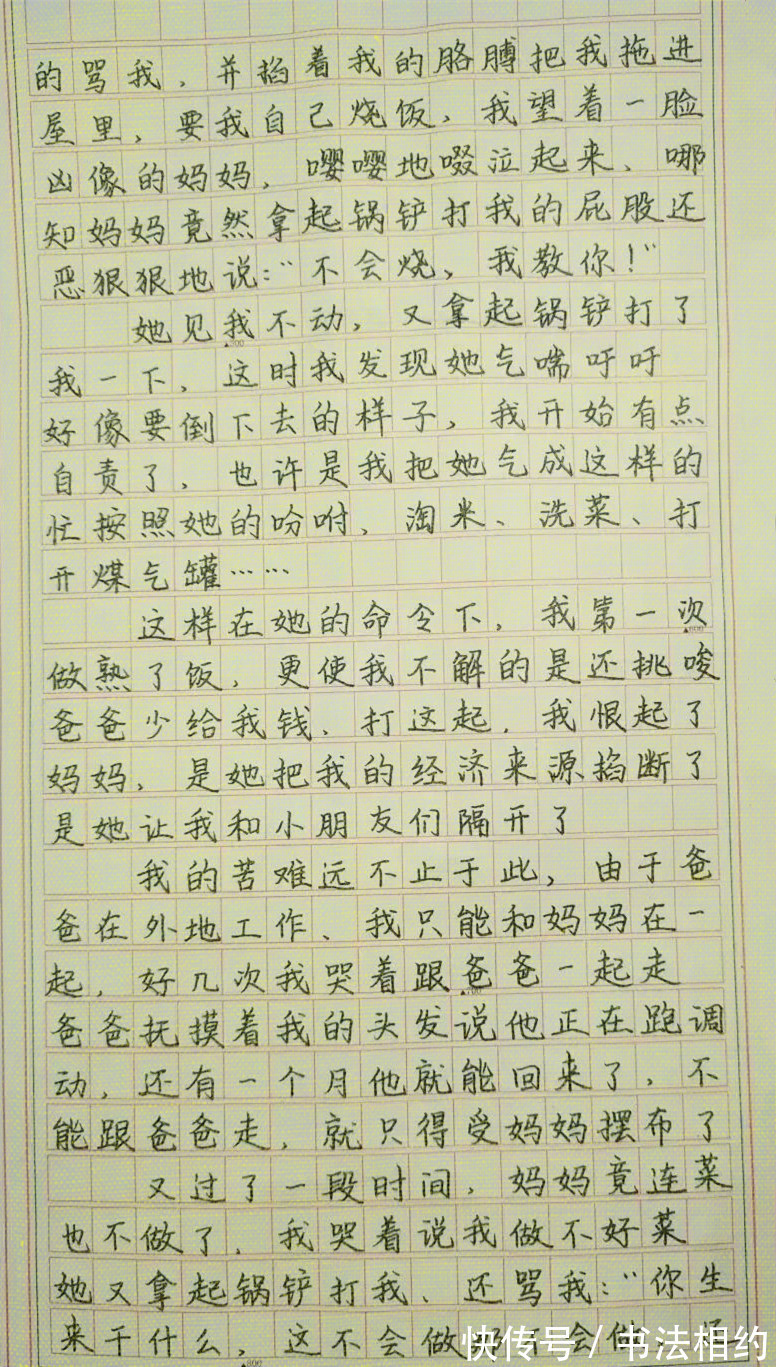 的骂我，并掐着我的胳膊把我拖进
屋里，要我自己烧饭，我望着一脸
凶像的妈妈，嘤嘤地啜泣起来、哪
知妈妈竟然拿起锅铲打我的屁股还
恶狠狠地说：“不会烧，我教你！”
她见我不动，又拿起锅铲打了
我一下，这时我发现她气喘吁吁
好像要倒下去的样子，我开始有点
自责了，也许是我把她气成这样的
忙按照她的吩咐、淘米、洗菜、打
开煤气罐……
这样在她的命令下，我第一次
做熟了饭，更使我不解的是还挑唆
爸爸少给我钱、打这起，我恨起了
妈妈，是她把我的经济来源掐断了
是她让我和小朋友们隔开了
我的苦难远不止于此，由于爸
爸在外地工作、我只能和妈妈在一
起，好几次我哭着跟爸爸一起走
爸爸抚摸着我的头发说他正在跑调
动，还有一个月他就能回来了，不
能跟爸爸走，就只得受妈妈摆布了
又过了一段时间，妈妈竟连菜
也不做了，我哭着说我做不好菜
她又拿起锅铲打我、还骂我：“你生
来干什么，这不会做那不会做，
快传号/书法相约